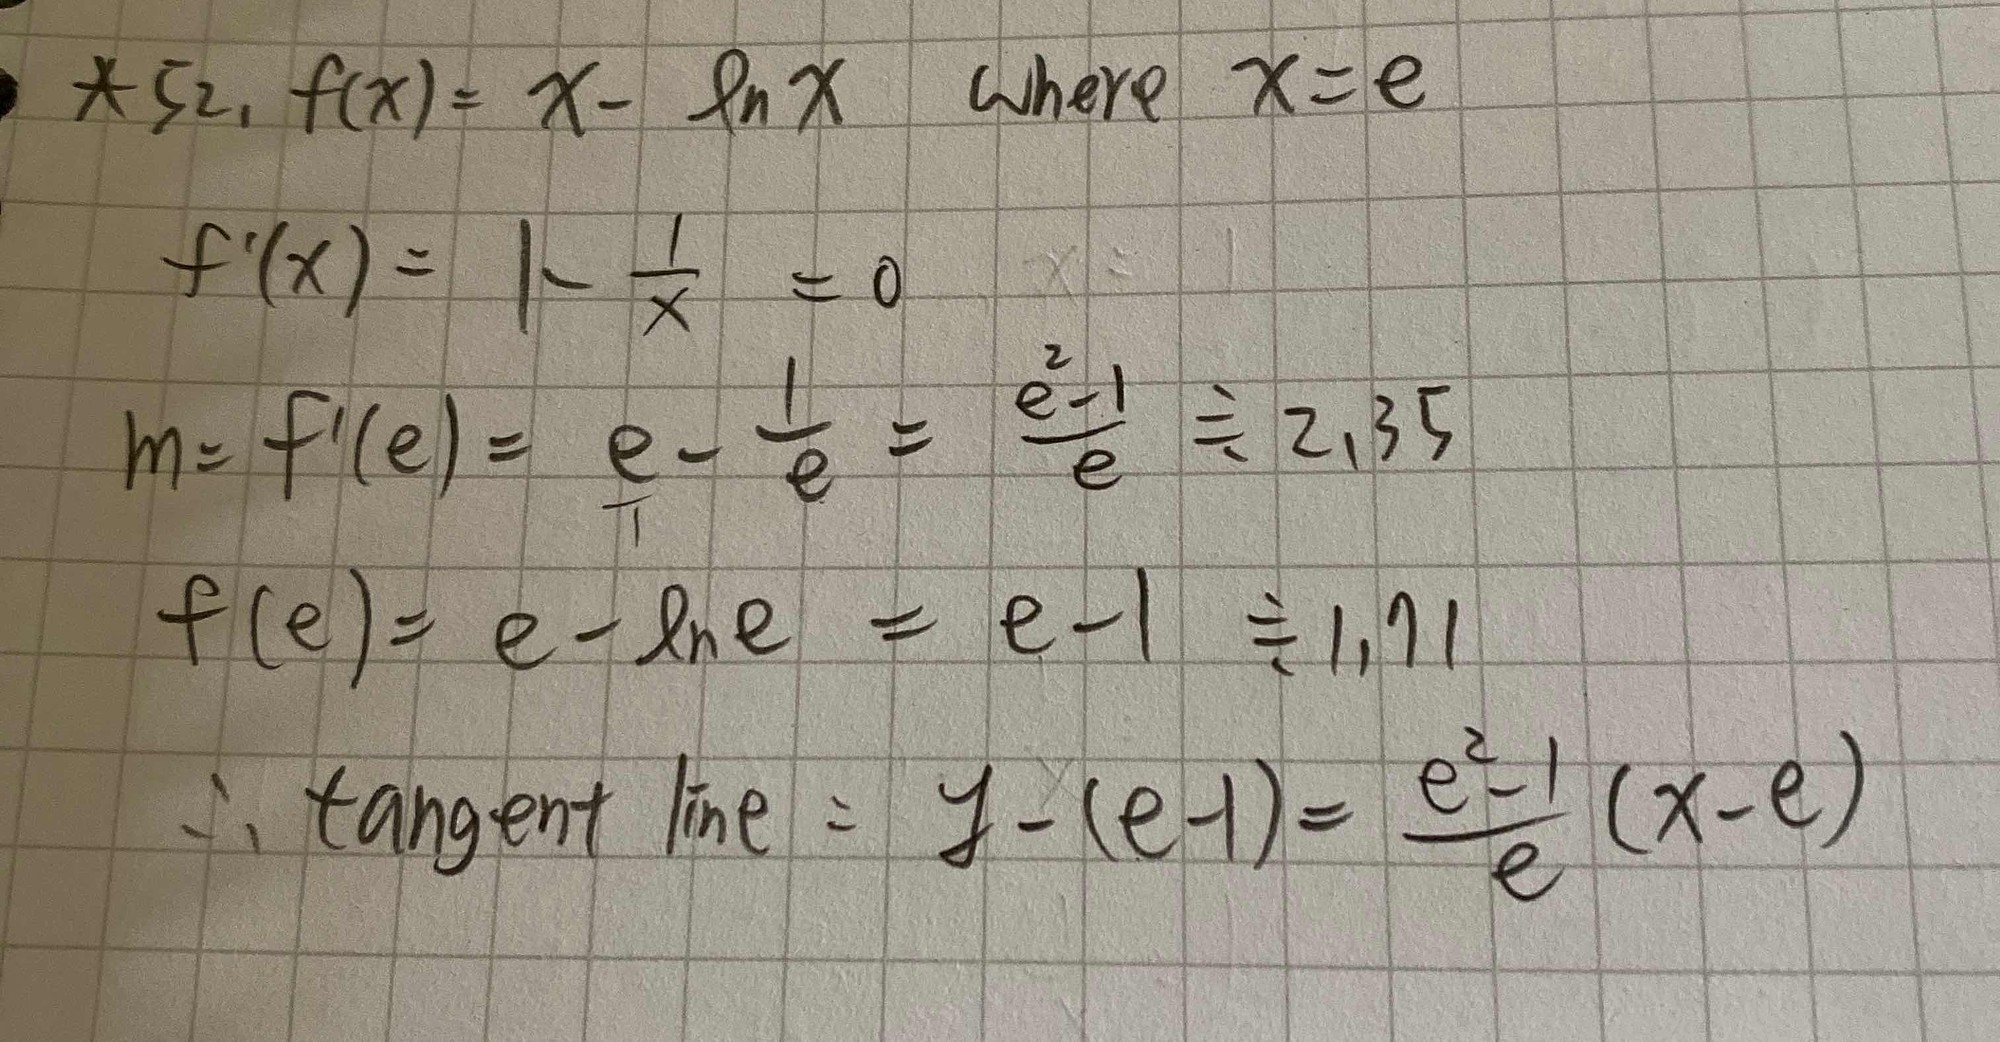 *52. f(x) = x - ln x where x = e
f'(x) = 1 - 1/x = 0 x =
m = f'(e) = e/1 - 1/e = e²-1/e ≒ 2.35
f(e) = e - ln e = e - 1 ≒ 1.71
∴ tangent line = y - (e-1) = e²-1/e (x-e)